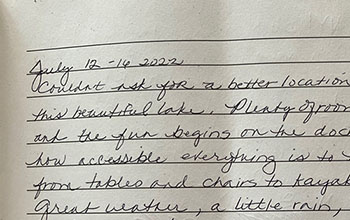 July 12-16 2022
Couldn't ask for a better location
this beautiful lake. Plenty of room
and the fun begins on the doc
how accessible everything is to
from tables and chairs to kayak
Great weather, a little rain,